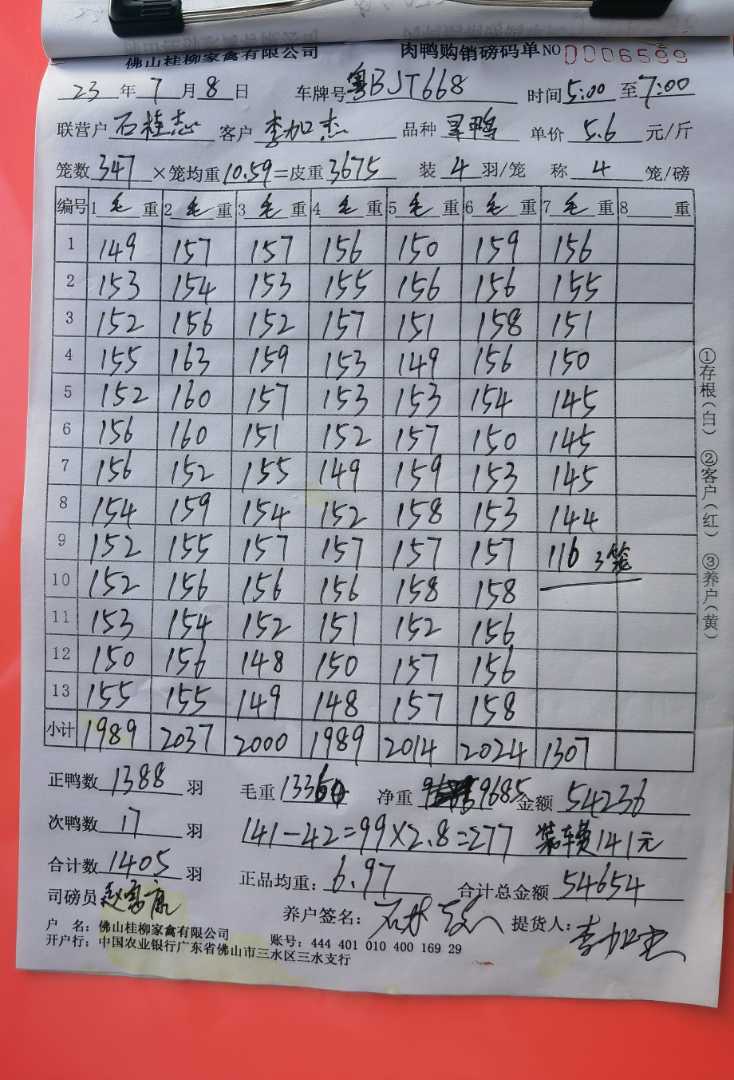 佛山桂柳家禽有限公司 肉鸭购销磅码单 NO 0006599
23 年 7 月 8 日 车牌号 粤BJT668 时间 5:00 至 7:00
联营户 石桂志 客户 李加杰 品种 旱鸭 单价 5.6 元/斤
笼数 347 ×笼均重 10.59 =皮重 3675 装 4 羽/笼 称 4 笼/磅
编号 1 毛 重 2 毛 重 3 毛 重 4 毛 重 5 毛 重 6 毛 重 7 毛 重 8 重
1 149 157 157 156 150 159 156
2 153 154 153 155 156 156 155
3 152 156 152 157 151 158 151
4 155 163 159 153 149 156 150
5 152 160 157 153 153 154 145
6 156 160 151 152 157 150 145
7 156 152 155 149 159 153 145
8 154 159 154 152 158 153 144
9 152 155 157 157 157 157 116 3笼
10 152 156 156 156 158 158
11 153 154 152 151 152 156
12 150 156 148 150 157 156
13 155 155 149 148 157 158
小计 1989 2037 2000 1989 2014 2024 1307
正鸭数 1388 羽 毛重 13360 净重 9685 金额 54236
次鸭数 17 羽 141-42=99×2.8=277 装车费141元
合计数 1405 羽 正品均重: 6.97 合计总金额 54654
司磅员 养户签名: 提货人: 李加杰
户 名: 佛山桂柳家禽有限公司 账号: 444 401 010 400 169 29
开户行: 中国农业银行广东省佛山市三水区三水支行
①存根(白) ②客户(红) ③养户(黄)